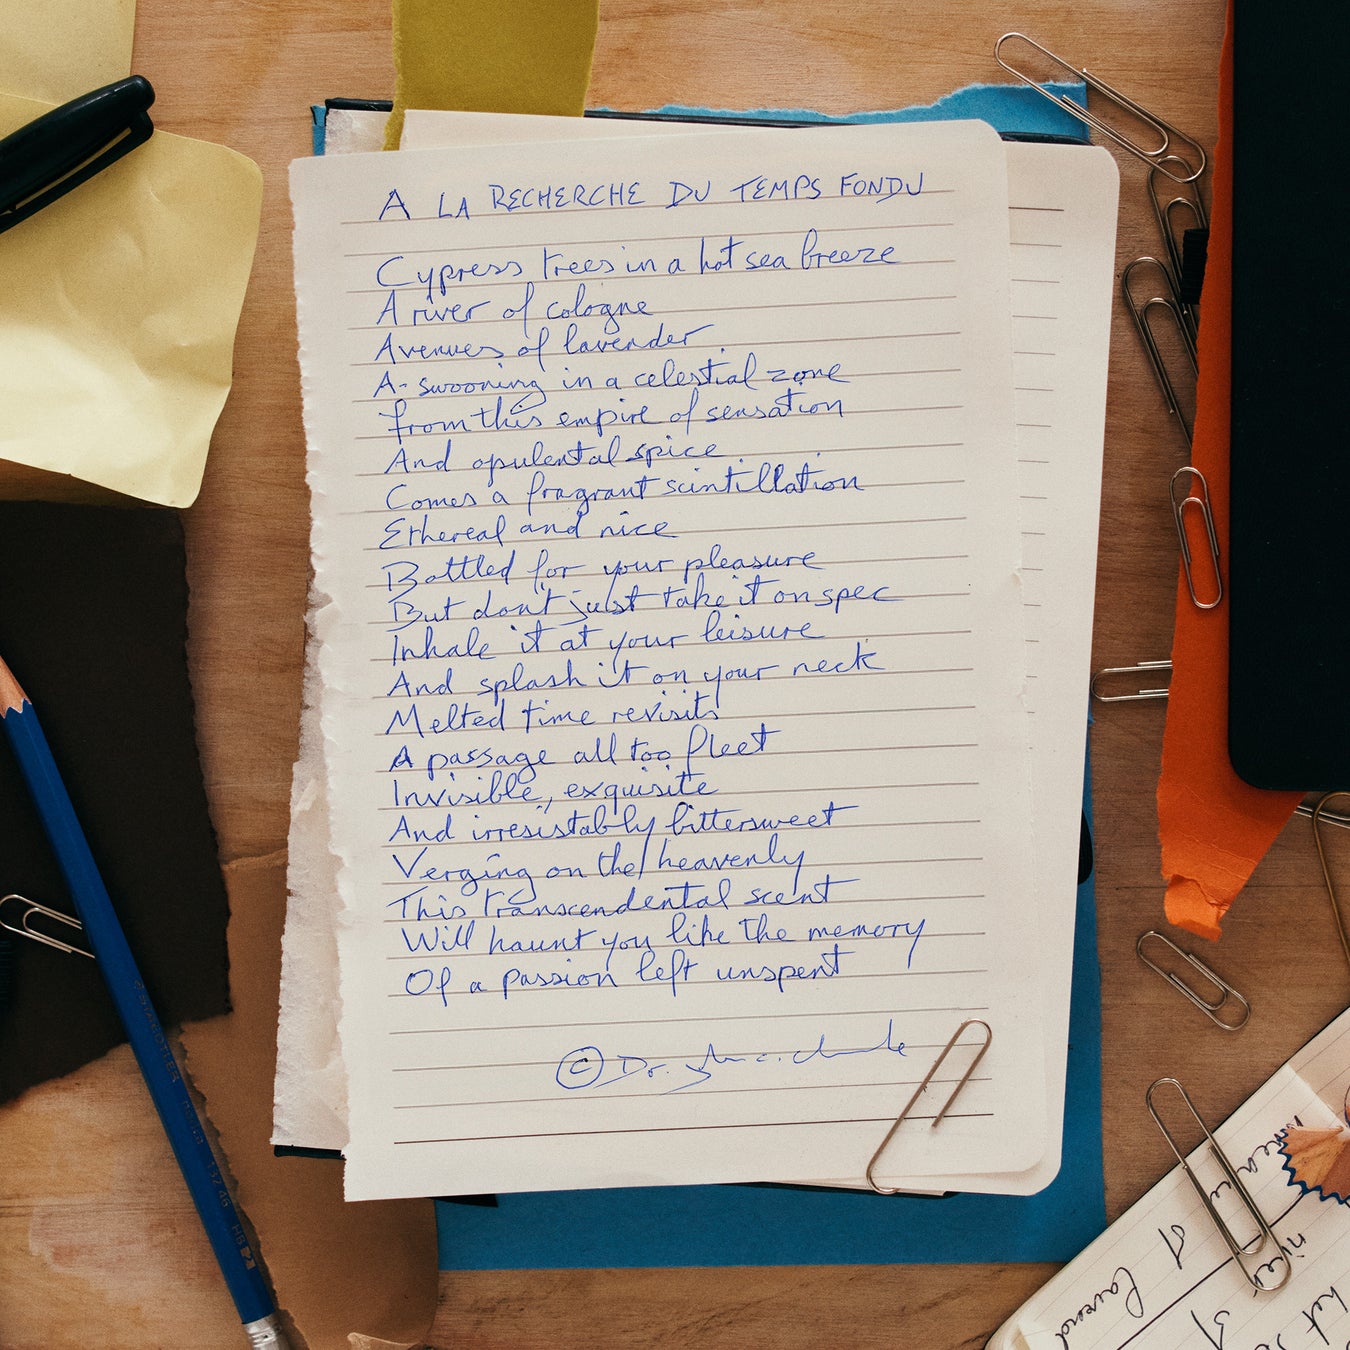 A LA RECHERCHE DU TEMPS FONDU
Cypress trees in a hot sea breeze
A river of cologne
Avenues of lavender
A-swooning in a celestial zone
from this empire of sensation
And opulental spice
Comes a fragrant scintillation
Ethereal and nice
Bottled for your pleasure
But don't just take it on spec
Inhale it at your leisure
And splash it on your neck
Melted time revisits
A passage all too fleet
Invisible, exquisite
And irresistably bittersweet
Verging on the heavenly
This transcendental scent
Will haunt you like the memory
Of a passion left unspent
© Dr. John C. Clarke
STAEDTLER
HB 2